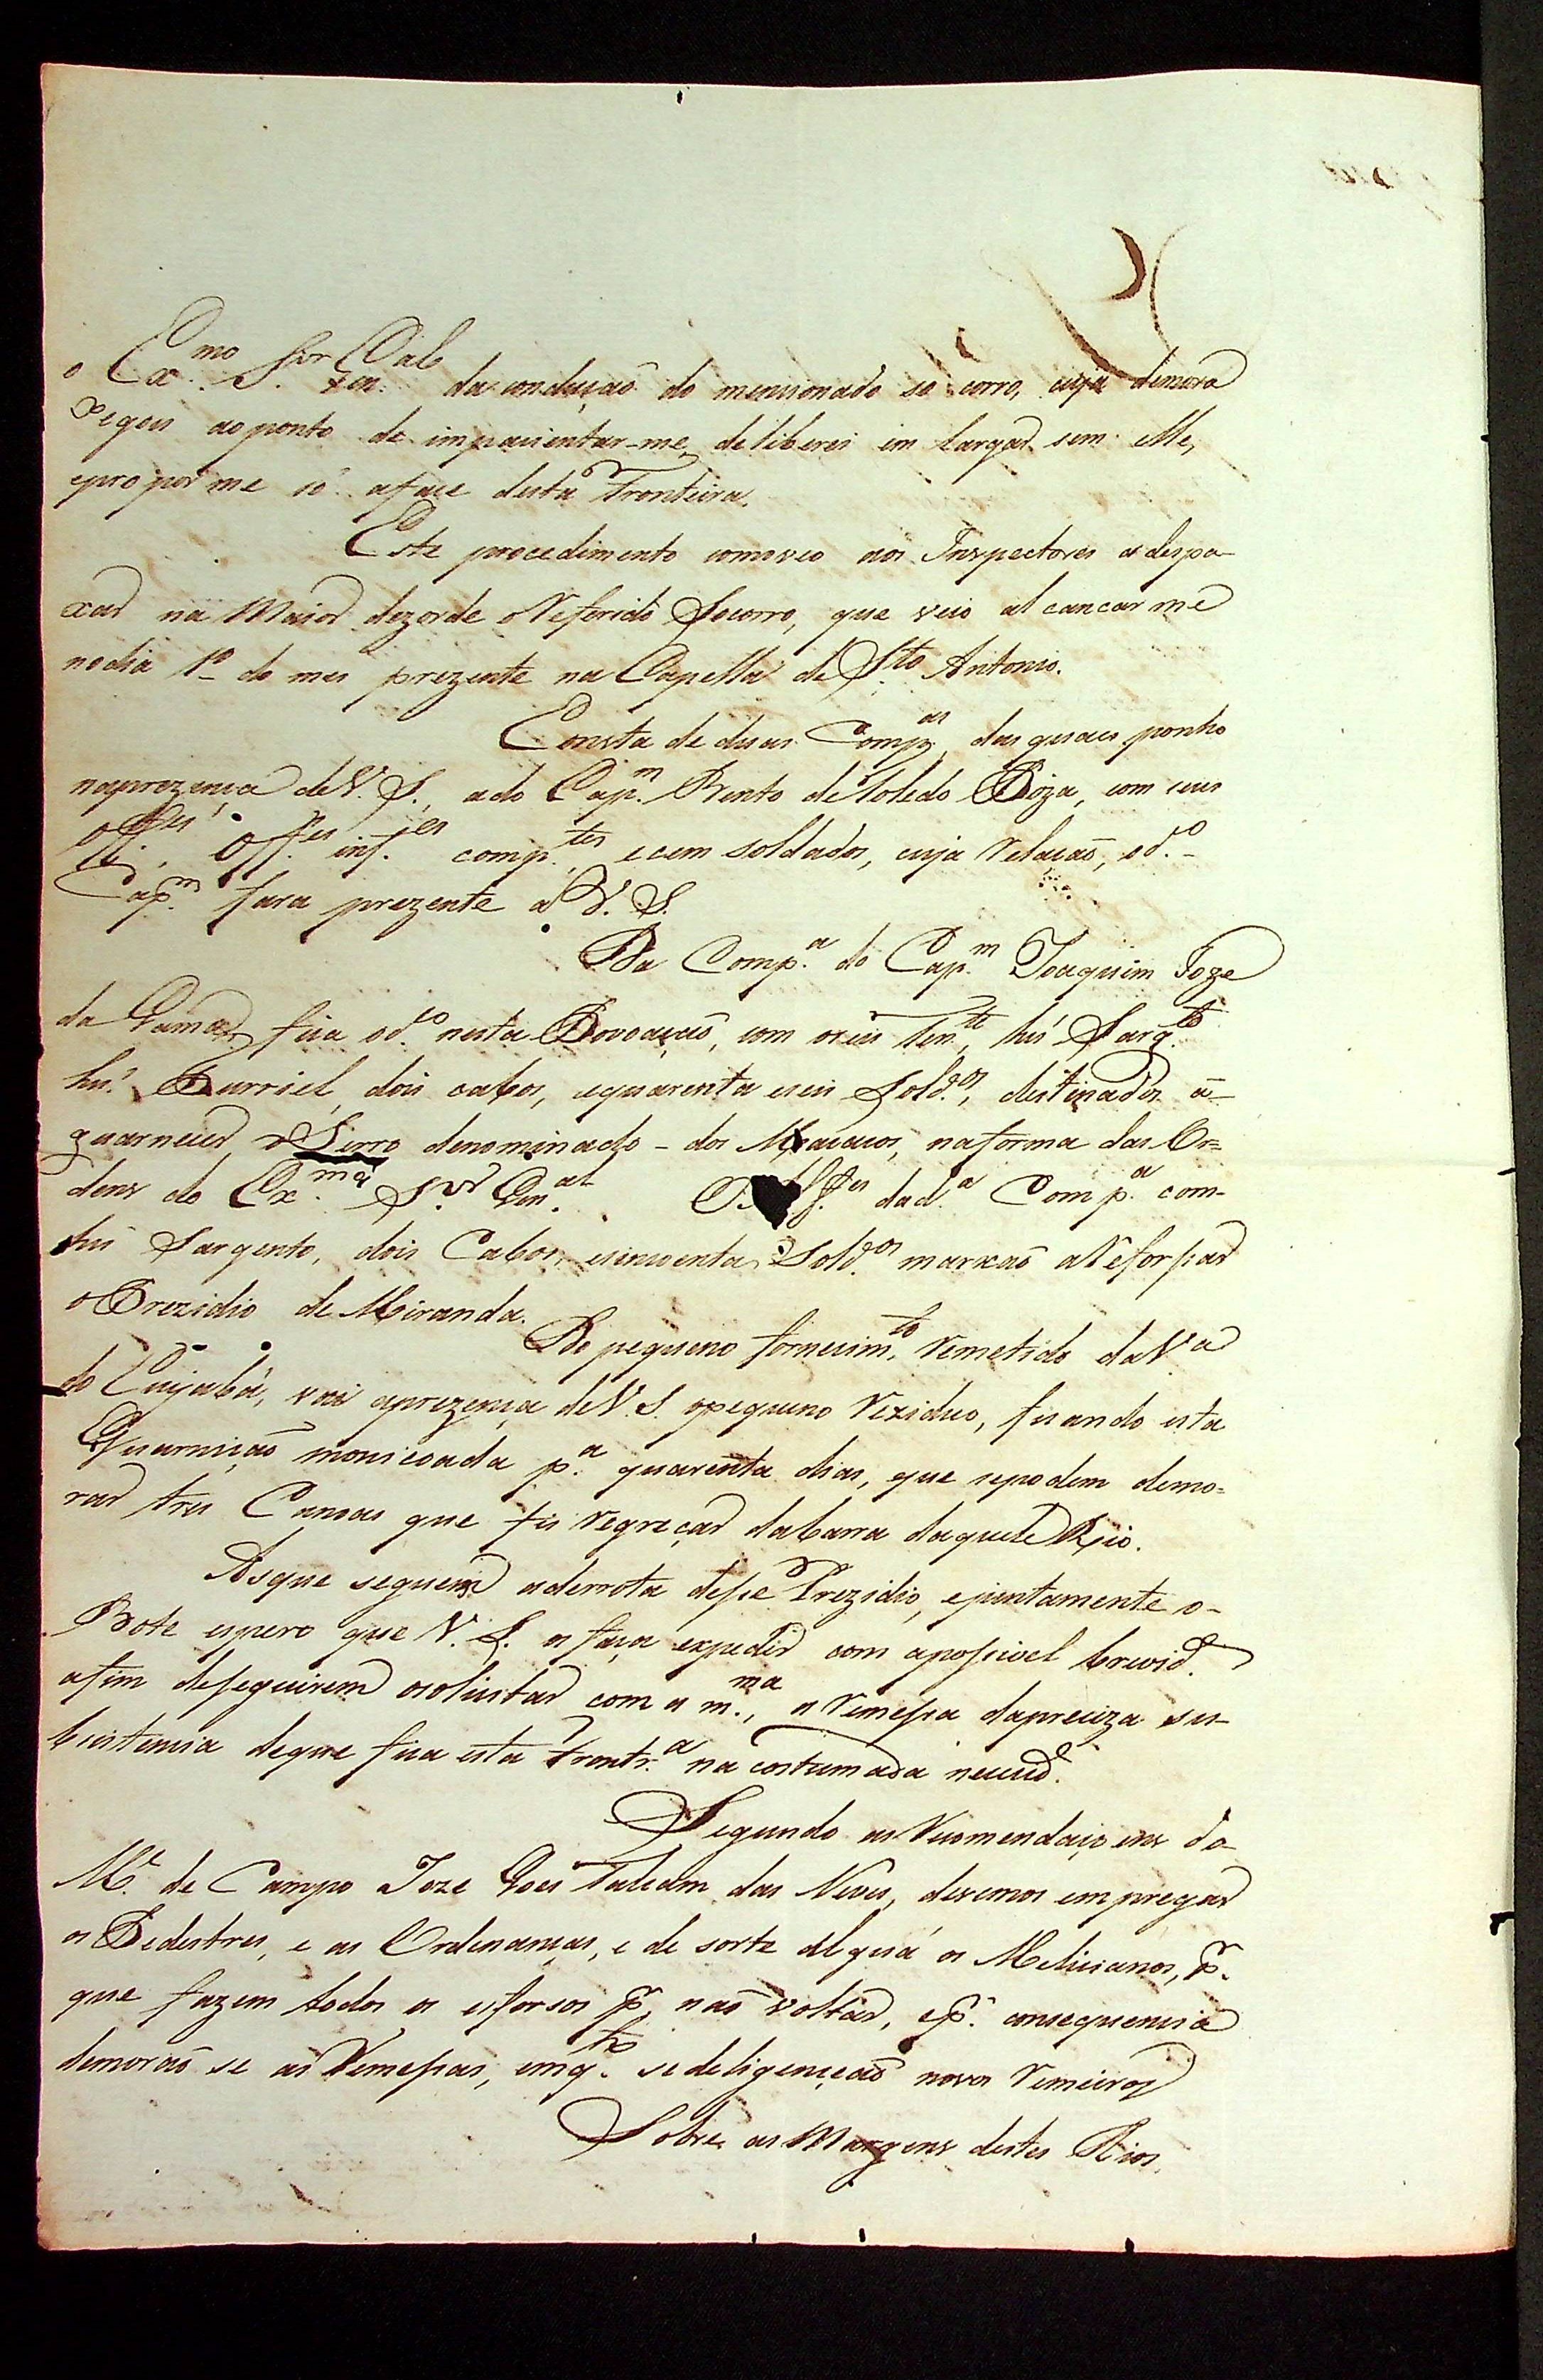 o Ex.mo S.or Gal da conduçaõ do mencionado so corro, cuja demora
xegou ao ponto de impacientar-me, deliberei im largar sem elle,
epropor me só aface desta Fronteira.
Este procedimento comoveo aos Inspectores a despa-
xar na maior dezorde o Referido Socorro, que veio alcancar me
nodia 1º do mes prezente na Capella de S.to Antonio.
Consta de duas Comp.as, das quaes ponho
naprezença de V. S., ado Cap.m Bento de Toledo Piza, com seus
Off.es, Off.es inf.es comp.tes, ecem soldados, cuja Relaçaõ, od.o
Cap.m fara prezente a V. S.
Da Comp.a do Cap.m Joaquim Joze
da Gama, fica od.o nesta Povoaçaõ, com oseu Ten.te, hú Sarg.to
hú Furriel, dois cabos, equarenta eseis Sold.os, destinados a-
guarnecer o Serro denominado - dos Macacos, naforma das Or=
dens do Ex.mo S.or Gen.al dad.a Comp.a com-
hú Sargento, dois Cabos, ecincoenta Sold.os marxaõ aReforsar
o Prezidio de Miranda.
Do pequeno fornecim.to Remetido da V.a
do Cuyabá, vai aprezença de V. S. opequeno Reziduo, ficando esta
Guarniçaõ monicoada p.a quarenta dias, que sepodem demo=
rar tres Canoas que fis Regreçar dabarra daquele Rio.
As que seguem aderrota desse Prezidio, ejuntamente o-
Bote espero que V. S. os faça expedir com apossivel brevid.e
afim deseguirem asolicitar com a m.ma, a Remessa dapreciza su-
bsistencia deque fica esta Frontr.a na costumada necécid.e
Segundo as Recomendaçoens do
M.e de Campo Joze Paes Falcam das Neves, devemos empregar
os Pedestres, e as Ordenanças, e de sorte alguá os Melicianos, p.r
que fazem todos os esforsos p.r naõ voltar, ep.r consequencia
demoraõ se as Remessas, emq.to sedeligenceaõ novos Remeiros
Sobre as Margens destes Rios,